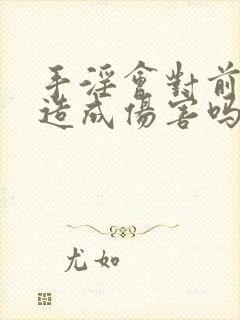 手淫會對前
造成傷害嗎
尤如